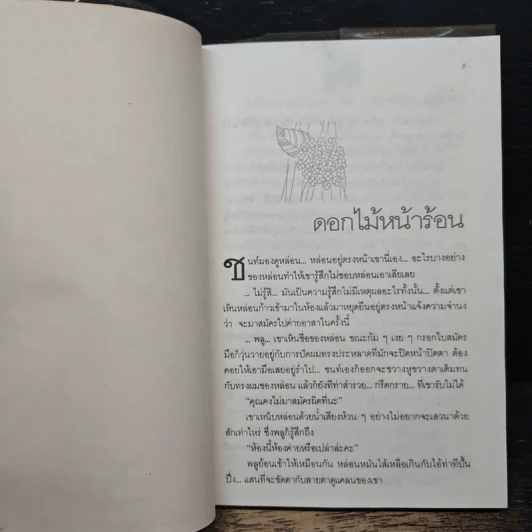 ดอกไม้หน้าร้อน
ชนท์มองดูหล่อน... หล่อนอยู่ตรงหน้าเขานี่เอง... อะไรบางอย่าง
ของหล่อนทำให้เขารู้สึกไม่ชอบหล่อนเอาเสียเลย
... ไม่รู้สิ... มันเป็นความรู้สึกไม่มีเหตุผลอะไรทั้งนั้น... ตั้งแต่เขา
เห็นหล่อนก้าวเข้ามาในห้องแล้วมาหยุดยืนอยู่ตรงหน้าแจ้งความจำนง
ว่า จะมาสมัครไปค่ายอาสาในครั้งนี้
... พลู... เขาเห็นชื่อของหล่อน ขณะก้ม ๆ เงย ๆ กรอกใบสมัคร
มือก็วุ่นวายอยู่กับการปัดผมทรงประหลาดที่มักจะปิดหน้าปิดตา ต้อง
คอยให้เอามือเสยอยู่ร่ำไป... ชนท์เองก็ออกจะขวางหูขวางตาเต็มทน
กับทรงผมของหล่อน แล้วก็ยังทีท่าสำรวย... กรีดกราย... ที่เขารับไม่ได้
"คุณคงไม่มาสมัครผิดที่นะ"
เขาเหน็บหล่อนด้วยน้ำเสียงห้วน ๆ อย่างไม่อยากจะเสวนาด้วย
สักเท่าไหร่ ซึ่งพลูก็รู้สึกถึง
"ห้องนี้ห้องค่ายหรือเปล่าล่ะคะ"
พลูย้อนเข้าให้เหมือนกัน หล่อนหมั่นไส้เหลือเกินกับไอ้ท่าทีปั้น
ปึ่ง... แสนที่จะขัดตากับสายตาดูแคลนของเขา